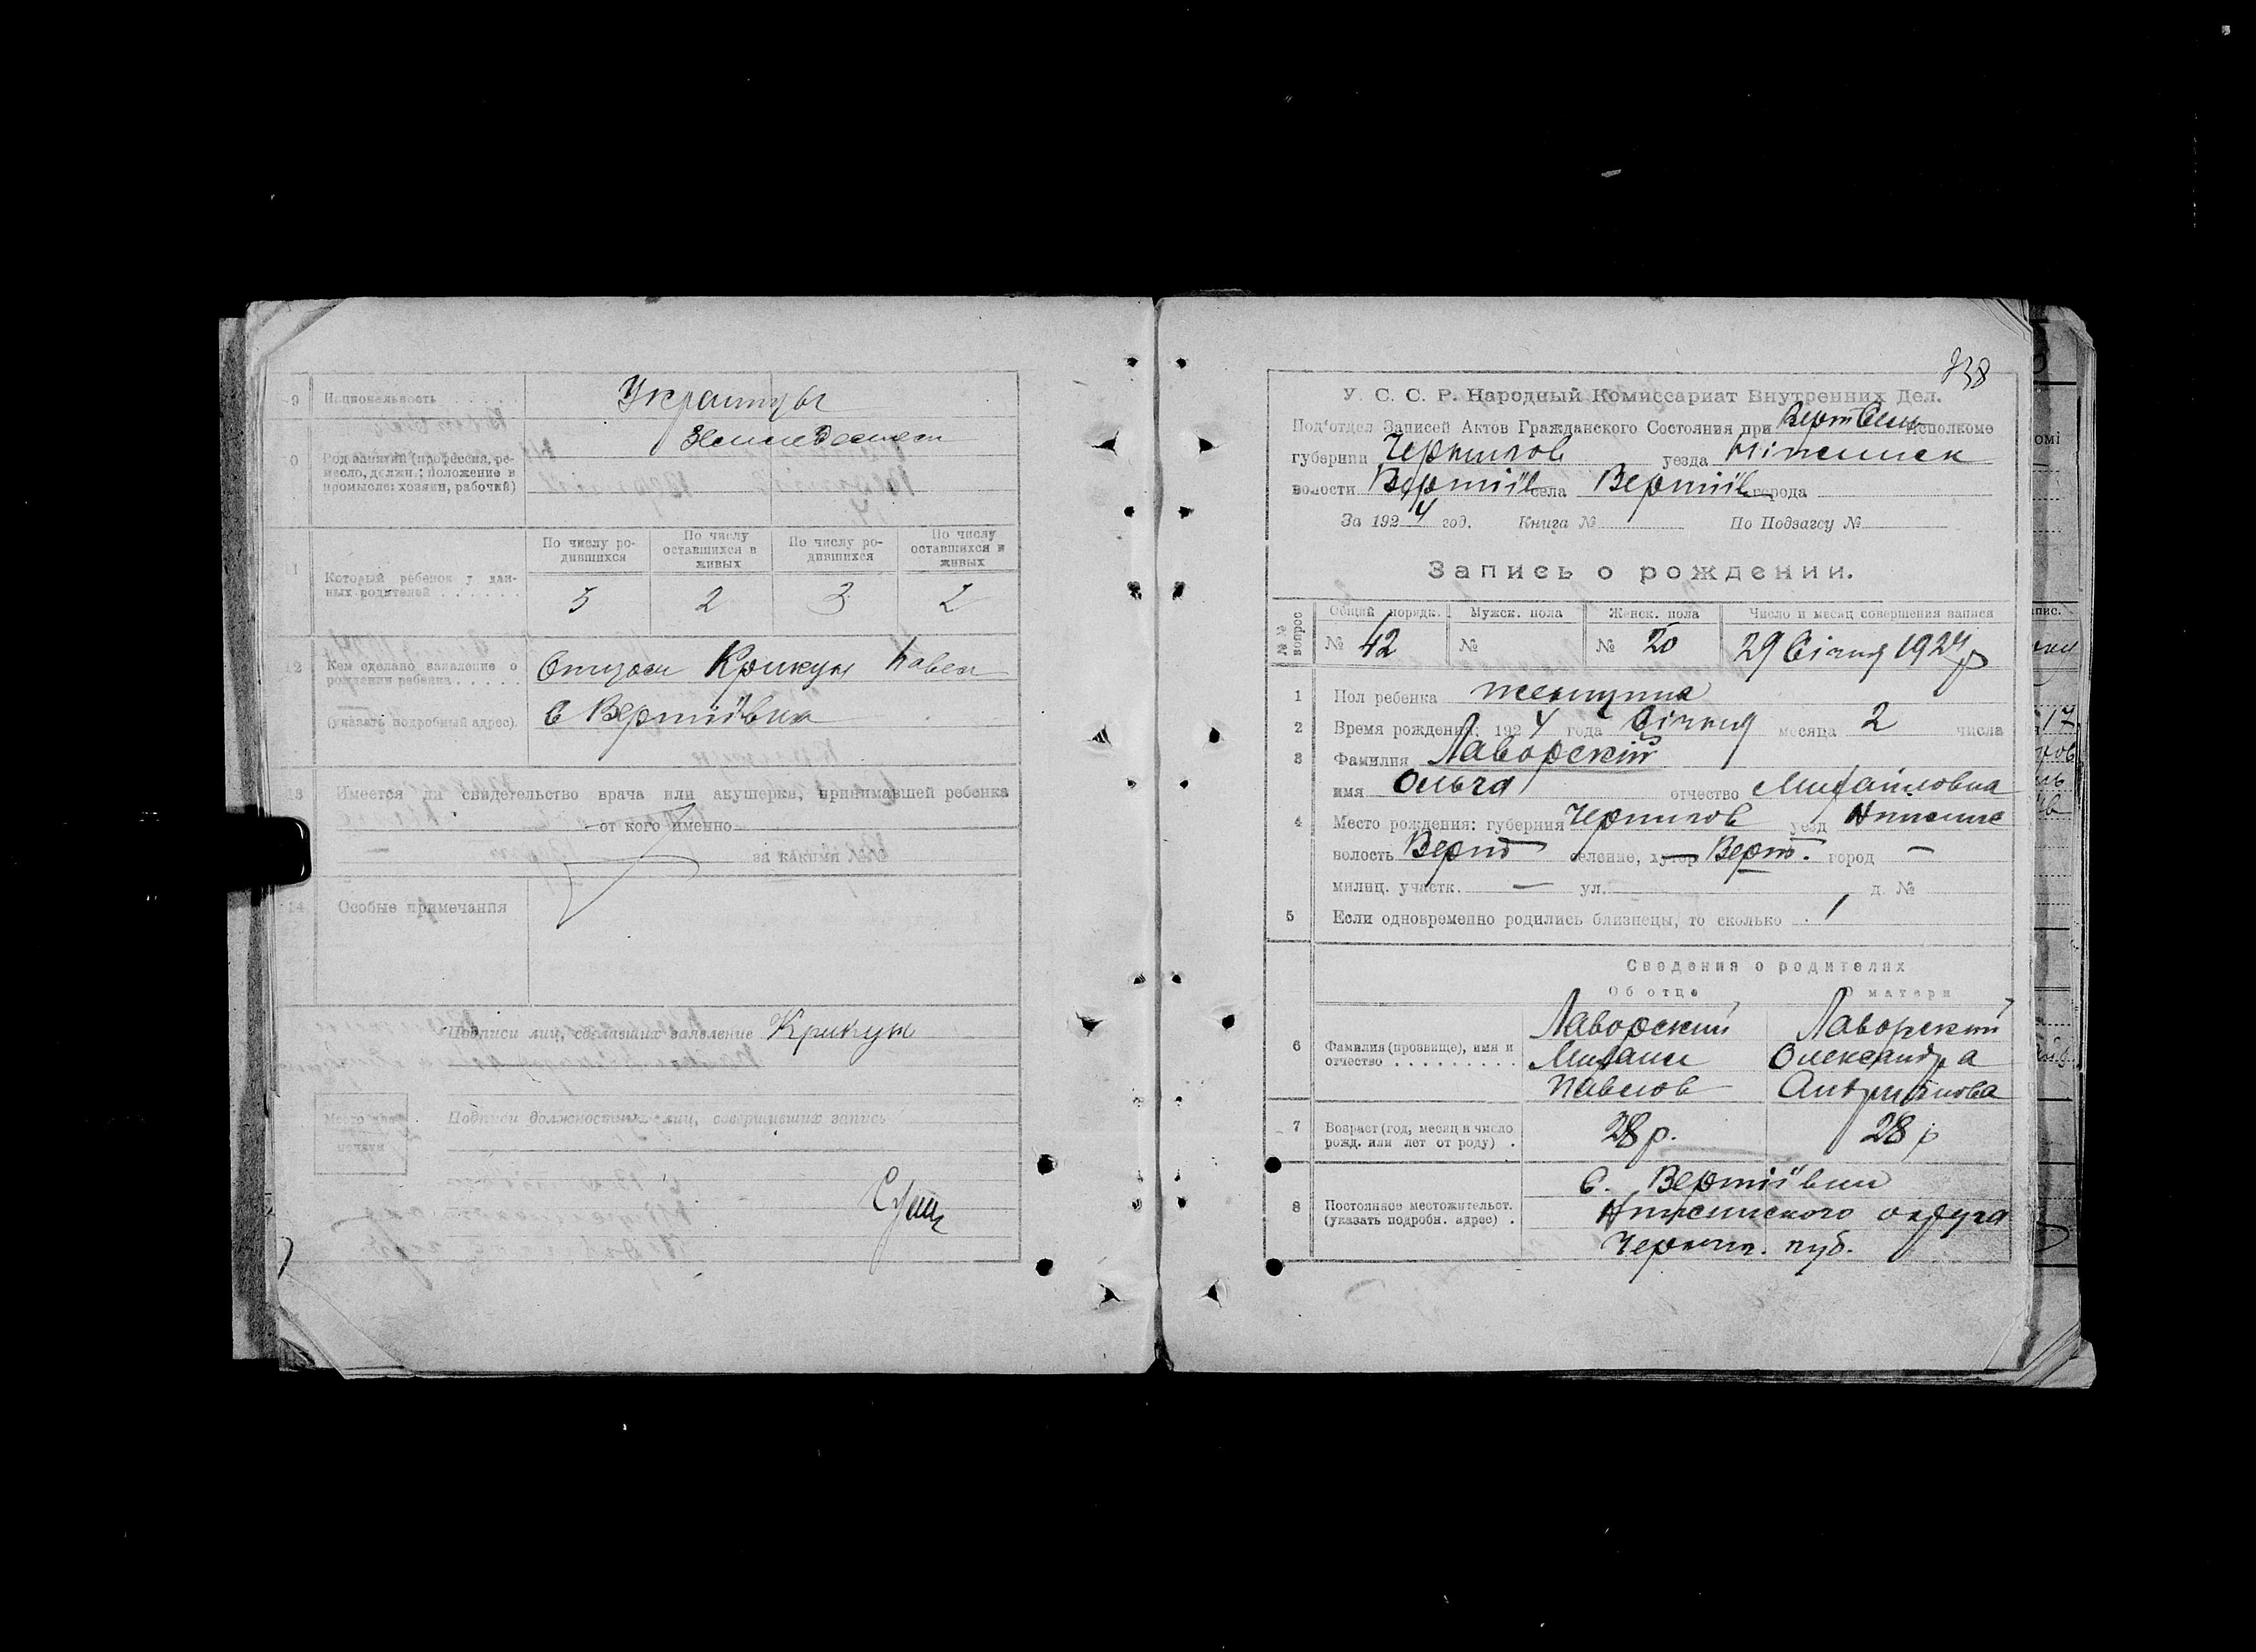 9 Национальность
Украинцы
10 Род занятий (профессия, ре-
месло, должн.; положение в
промысле: хозяин, рабочий)
11 Который ребенок у дан-
ных родителей
По числу ро-
дившихся
По числу
оставшихся в
живых
По числу ро-
дившихся
По числу
оставшихся в
живых
2 3 2
12 Кем сделано заявление о
рождении ребенка
(указать подробный адрес).
Крикун Павел
с Вертіївка
13 Имеется ли свидетельство врача или акушерки, принимавшей ребенка
от кого именно
за каким №
14 Особые примечания
Подписи лиц, сделавших заявление Крикун
Подписи должностных лиц, совершивших запись
Место для
печати
У. С. С. Р. Народный Комиссариат Внутренних Дел.
Под'отдел Записей Актов Гражданского Состояния при Исполкоме
губернии Чернигов уезда
волости Вертіїв села Вертіїв города
За 1924 год. Книга № По Подзагсу №
Запись о рождении.
№№ вопрос
Общий порядк. Мужск. пола Женск. пола Число и месяц совершения записи
№ 42 № № 20 29 Січня 1924 р
1 Пол ребенка женщина
2 Время рождения: 1924 года Січня месяца 2 числа
3 Фамилия Лаворский
имя Ольга отчество Михайловна
4 Место рождения: губерния Чернигов уезд
волость Верт селение, хутор Верт. город —
милиц. участк. — ул. — д. №
5 Если одновременно родились близнецы, то сколько 1
Сведения о родителях
Об отце О матери
6 Фамилия (прозвище), имя и
отчество
Лаворский Лаворский
Михаил Олександра
Павлов
7 Возраст (год, месяц и число
рожд. или лет от роду)
28 р. 28 р
8 Постоянное местожительст.
(указать подробн. адрес)
с. Вертіївки
округа
Черниг. губ.